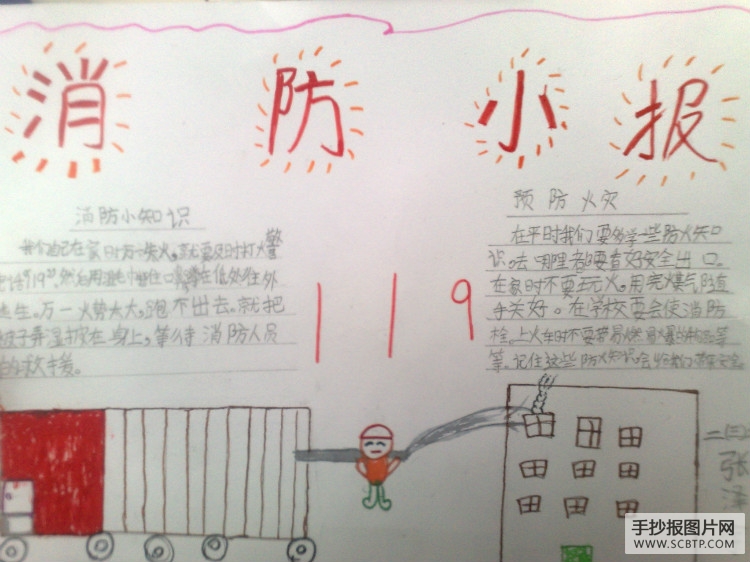 消防小报
消防小知识
我们自己在家时万一失火,就要及时打火警
电话"119",然后用湿毛巾捂住口鼻,在低处往外
逃生。万一火势太大,跑不出去。就把
被子弄湿披在身上,等待消防人员
的救援。
119
预防火灾
在平时我们要多学一些防火知
识。去哪里者要看好安全出口。
在家时不要玩火。用完煤气阀
手关好。在学校要会使消防
栓。上火车时不要带易燃易爆的物品等
等。记住这些防火知识会
二(三)
张
手抄报图片网
WWW.SCBTP.COM